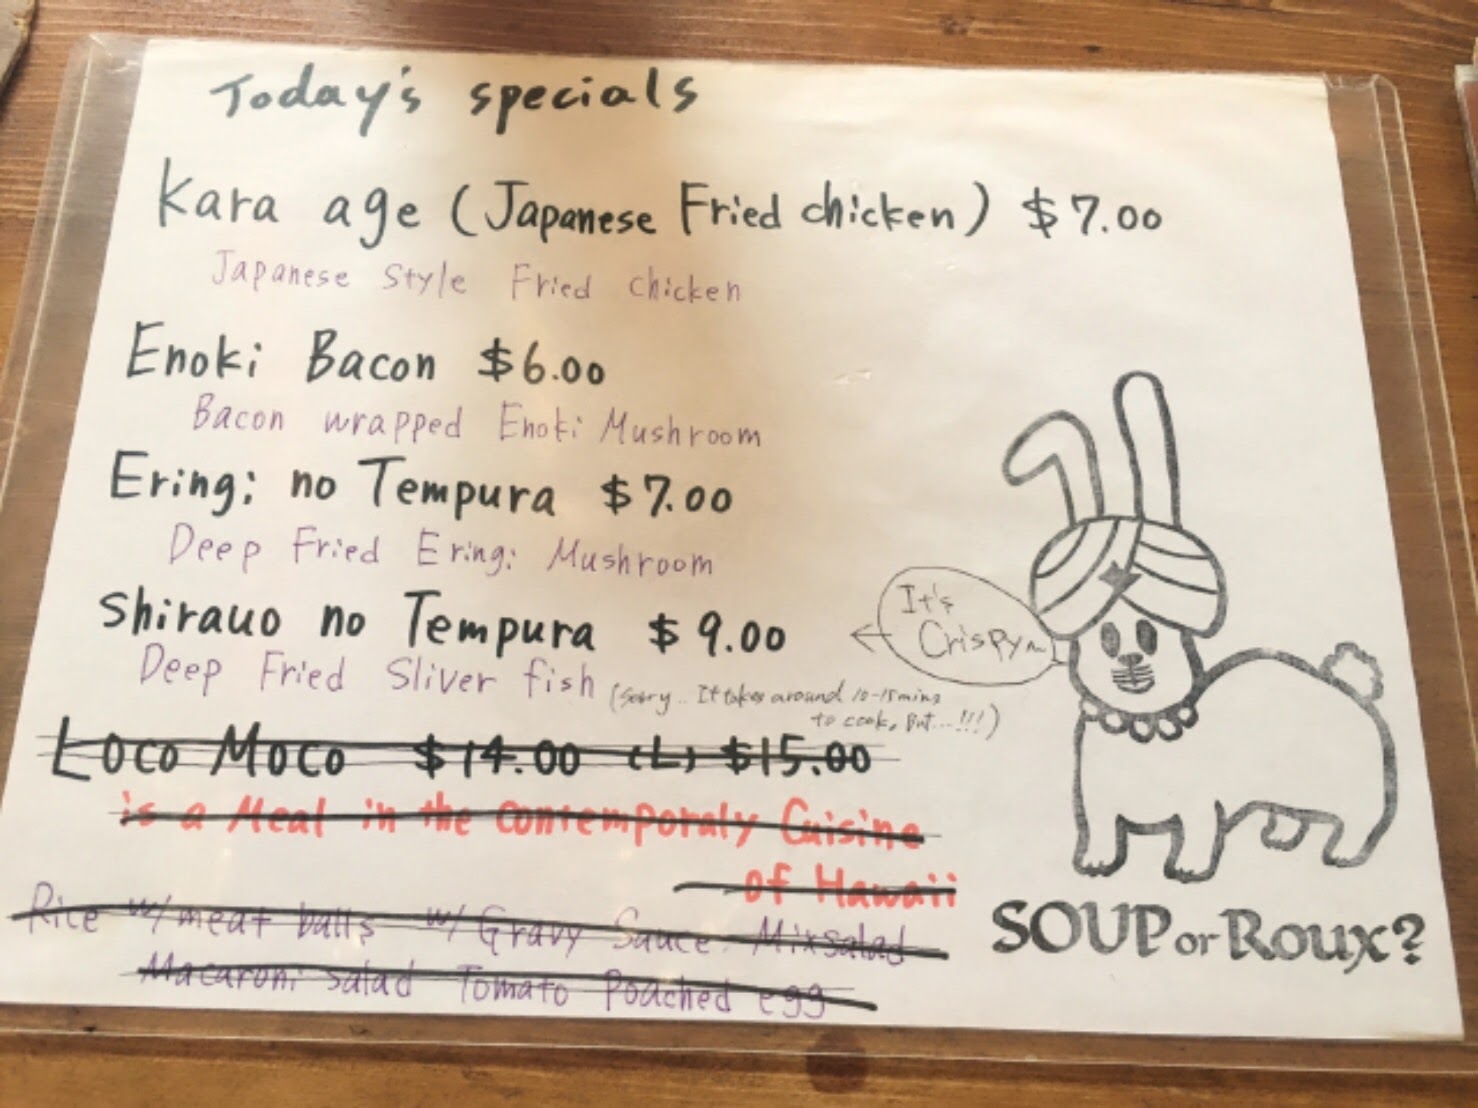 Today's specials
Kara age (Japanese Fried chicken) $7.00
Japanese Style Fried chicken
Enoki Bacon $6.00
Bacon wrapped Enoki Mushroom
Eringi no Tempura $7.00
Deep Fried Eringi Mushroom
Shirauo no Tempura $9.00
Deep Fried Sliver fish (Sorry.. It takes around 10-15mins
to cook, But...!!!)
It's
Crispy~
Loco Moco $14.00 (L) $15.00
is a Meal in the contemporaly Cuisine
of Hawaii
Rice w/meat balls w/ Gravy Sauce. Mixsalad
Macaroni salad Tomato Poached egg
SOUP or Roux?